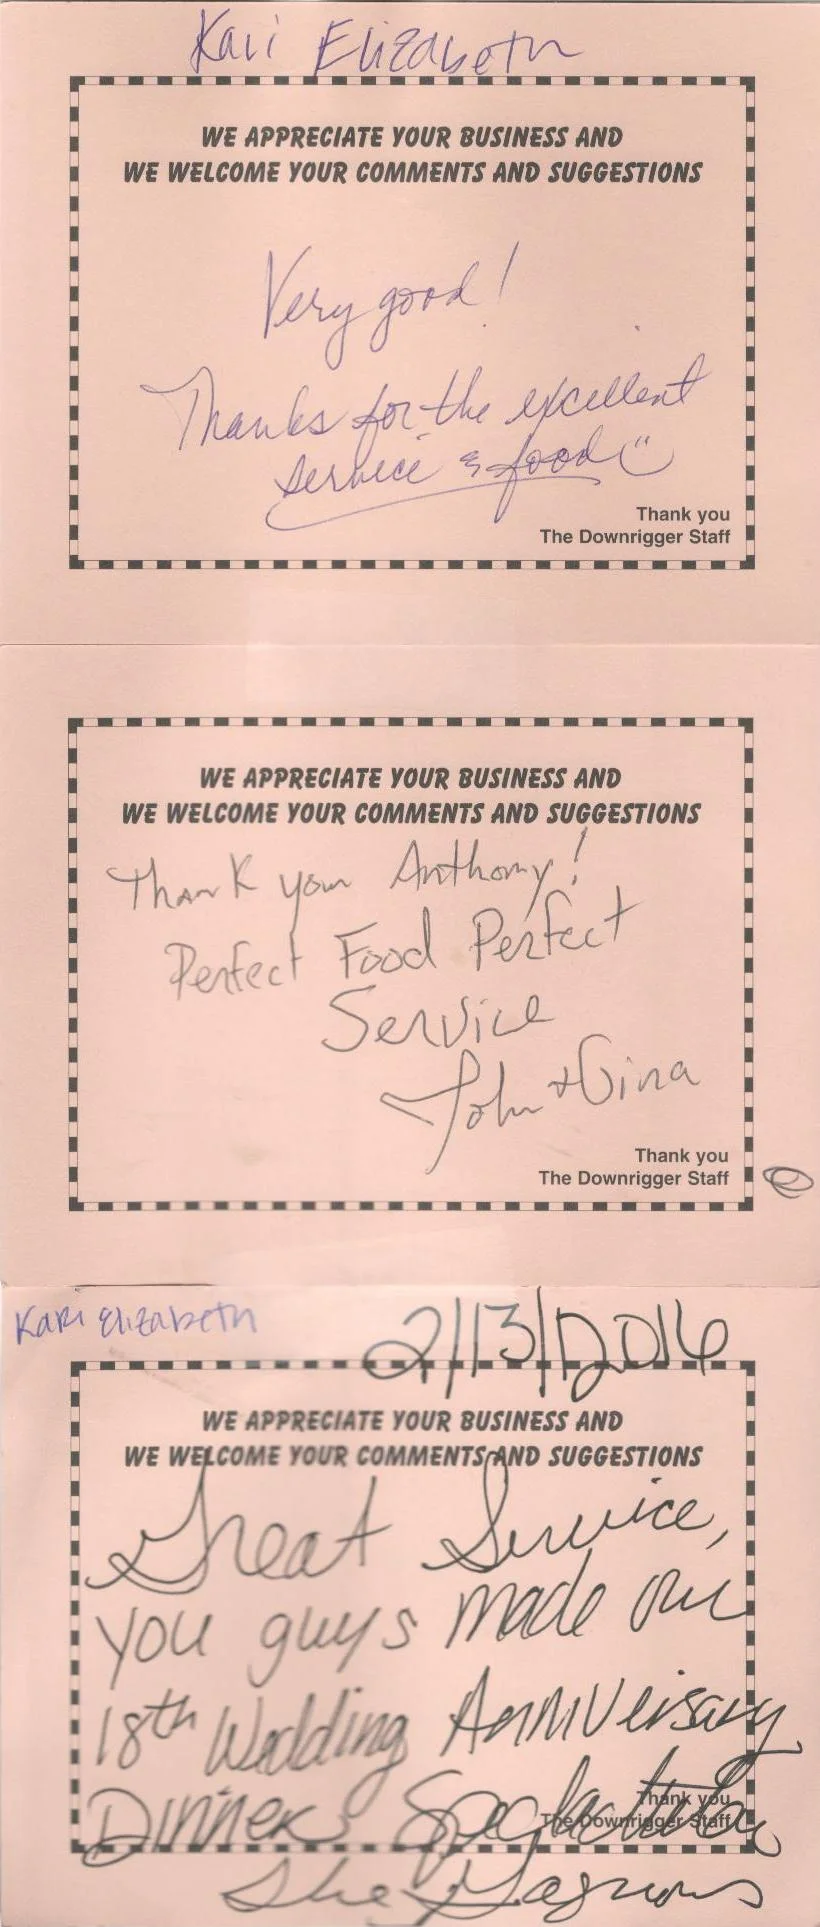 Kari Elizabeth
WE APPRECIATE YOUR BUSINESS AND
WE WELCOME YOUR COMMENTS AND SUGGESTIONS
Very good!
Thanks for the excellent
service & food
Thank you
The Downrigger Staff
WE APPRECIATE YOUR BUSINESS AND
WE WELCOME YOUR COMMENTS AND SUGGESTIONS
Thank you Anthony!
Perfect Food Perfect
Service
John + Gina
Thank you
The Downrigger Staff
Kari Elizabeth
2/13/2016
WE APPRECIATE YOUR BUSINESS AND
WE WELCOME YOUR COMMENTS AND SUGGESTIONS
Great Service,
you guys made our
18th Wedding Anniversary
Dinner Spectacular
Thank you
The Downrigger Staff
The Gagnons